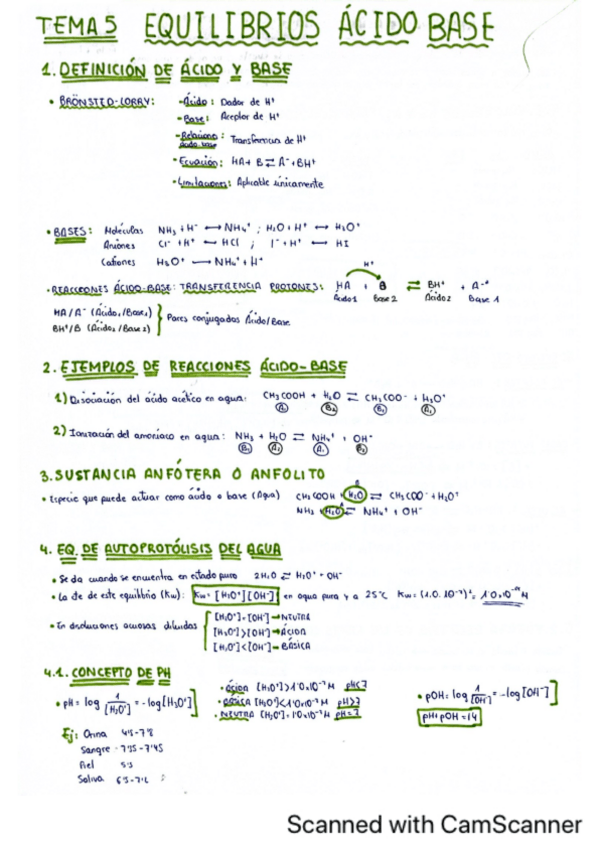 TEMA 5 EQUILIBRIOS ÁCIDO BASE
1. DEFINICIÓN DE ÁCIDO Y BASE
• BRÖNSTED-LORRY: -Ácido: Dador de H⁺
-Base: Aceptor de H⁺
-Relación ácido base: Transferencia de H⁺
-Ecuación: HA + B ⇄ A⁻ + BH⁺
-Limitaciones: Aplicable únicamente
• BASES: Moléculas NH₃ + H⁺ ⟷ NH₄⁺ ; H₂O + H⁺ ⟷ H₃O⁺
Aniones Cl⁻ + H⁺ ⟷ HCl ; I⁻ + H⁺ ⟷ HI
Cationes
• REACCIONES ÁCIDO-BASE: TRANSFERENCIA PROTONES: HA + B ⇄ BH⁺ + A⁻
H⁺
Ácido 1 Base 2 Ácido 2 Base 1
HA/A⁻ (Ácido₁/Base₁)
BH⁺/B (Ácido₂/Base₂)
Pares conjugados Ácido/Base
2. EJEMPLOS DE REACCIONES ÁCIDO-BASE
1) Disociación del ácido acético en agua: CH₃COOH + H₂O ⇄ CH₃COO⁻ + H₃O⁺
A₁ B₂ B₁
2) Ionización del amoniaco en agua: NH₃ + H₂O ⇄ NH₄⁺ + OH⁻
3. SUSTANCIA ANFÓTERA O ANFOLITO
• Especie que puede actuar como ácido o base (Agua) CH₃COOH + H₂O ⇄ CH₃COO⁻ + H₃O⁺
NH₃ + H₂O ⇄ NH₄⁺ + OH⁻
4. EQ. DE AUTOPROTÓLISIS DEL AGUA
• Se da cuando se encuentra en estado puro 2H₂O ⇄ H₃O⁺ + OH⁻
• La cte de este equilibrio (Kw): Kw = [H₃O⁺][OH⁻] en agua pura y a 25°C Kw = (1.0·10⁻⁷)² = 1'0·10⁻¹⁴ M
• En disoluciones acuosas diluidas
[H₃O⁺] = [OH⁻] → NEUTRA
[H₃O⁺] > [OH⁻] → ÁCIDA
[H₃O⁺] < [OH⁻] → BÁSICA
4.1. CONCEPTO DE PH
• pH = log 1/[H₃O⁺] = -log[H₃O⁺]
[H₃O⁺] > 1'0×10⁻⁷ M pH<7
• BÁSICA [H₃O⁺] < 1'0×10⁻⁷ M pH>7
• NEUTRA [H₃O⁺] = 1'0×10⁻⁷ M pH=7
• pOH = log 1/[OH⁻] = -log[OH⁻]
pH + pOH = 14
Ej: Orina
Sangre - 7'35 - 7'45
Saliva
Scanned with CamScanner